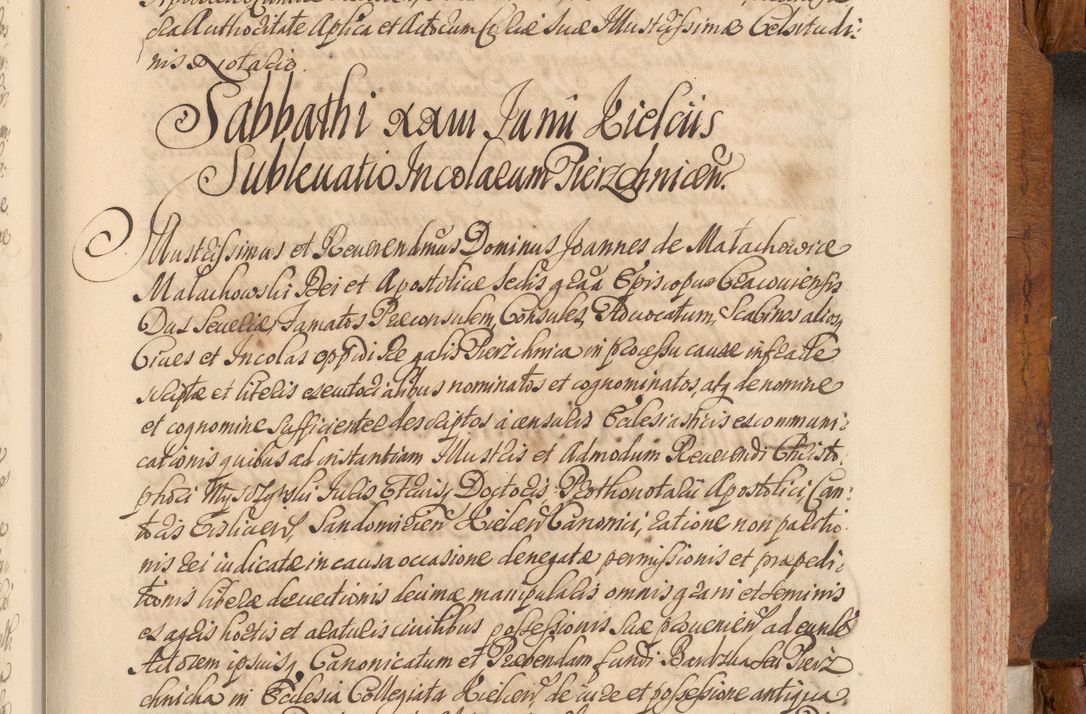 sca Authoritate Aplica et Actorum Curiae Suae Illustrissimae Celsitudi:
nis Notario.
Sabbathi XXIII Junii Kielciis
Sublevatio Incolarum Pierzchnicen.
Illustrissimus et Reverendmus Dominus Joannes de Małachowice
Małachowski Dei et Apostolicae Sedis graa Episcopus Cracoviensis
Dux Severiae, Famatos Praeconsulem, Consules, Advocatum, Scabinos alios,
Cives et Incolas oppidi Regalis Pierzchnica in processu causae infra te
scriptae et literis executorialibus nominatos et cognominatos, atq de nomine
et cognomine sufficienter descriptos a censuris Ecclesiasticis excommuni:
cationis quibus ad instantiam Illustris et Admodum Reverendi Christo
phori Juris Doctoris Prothonotarii Apostolici Can:
toris Sandomirien Kielcen Canonici, ratione non paritio
nis rei iudicatae in causa occasione denegatae permissionis et praepedi:
tionis liberae devectionis decimae manipularis omnis grani et seminis
ex agris hortis et araturis civilibus possessionis suae provenien ad eundē
Actorem ipsiusq Canonicatum et Praebendam fundi seu Pierz
chnicha in Ecclesia Collegiata Kielcen de iure et possessione antiqua